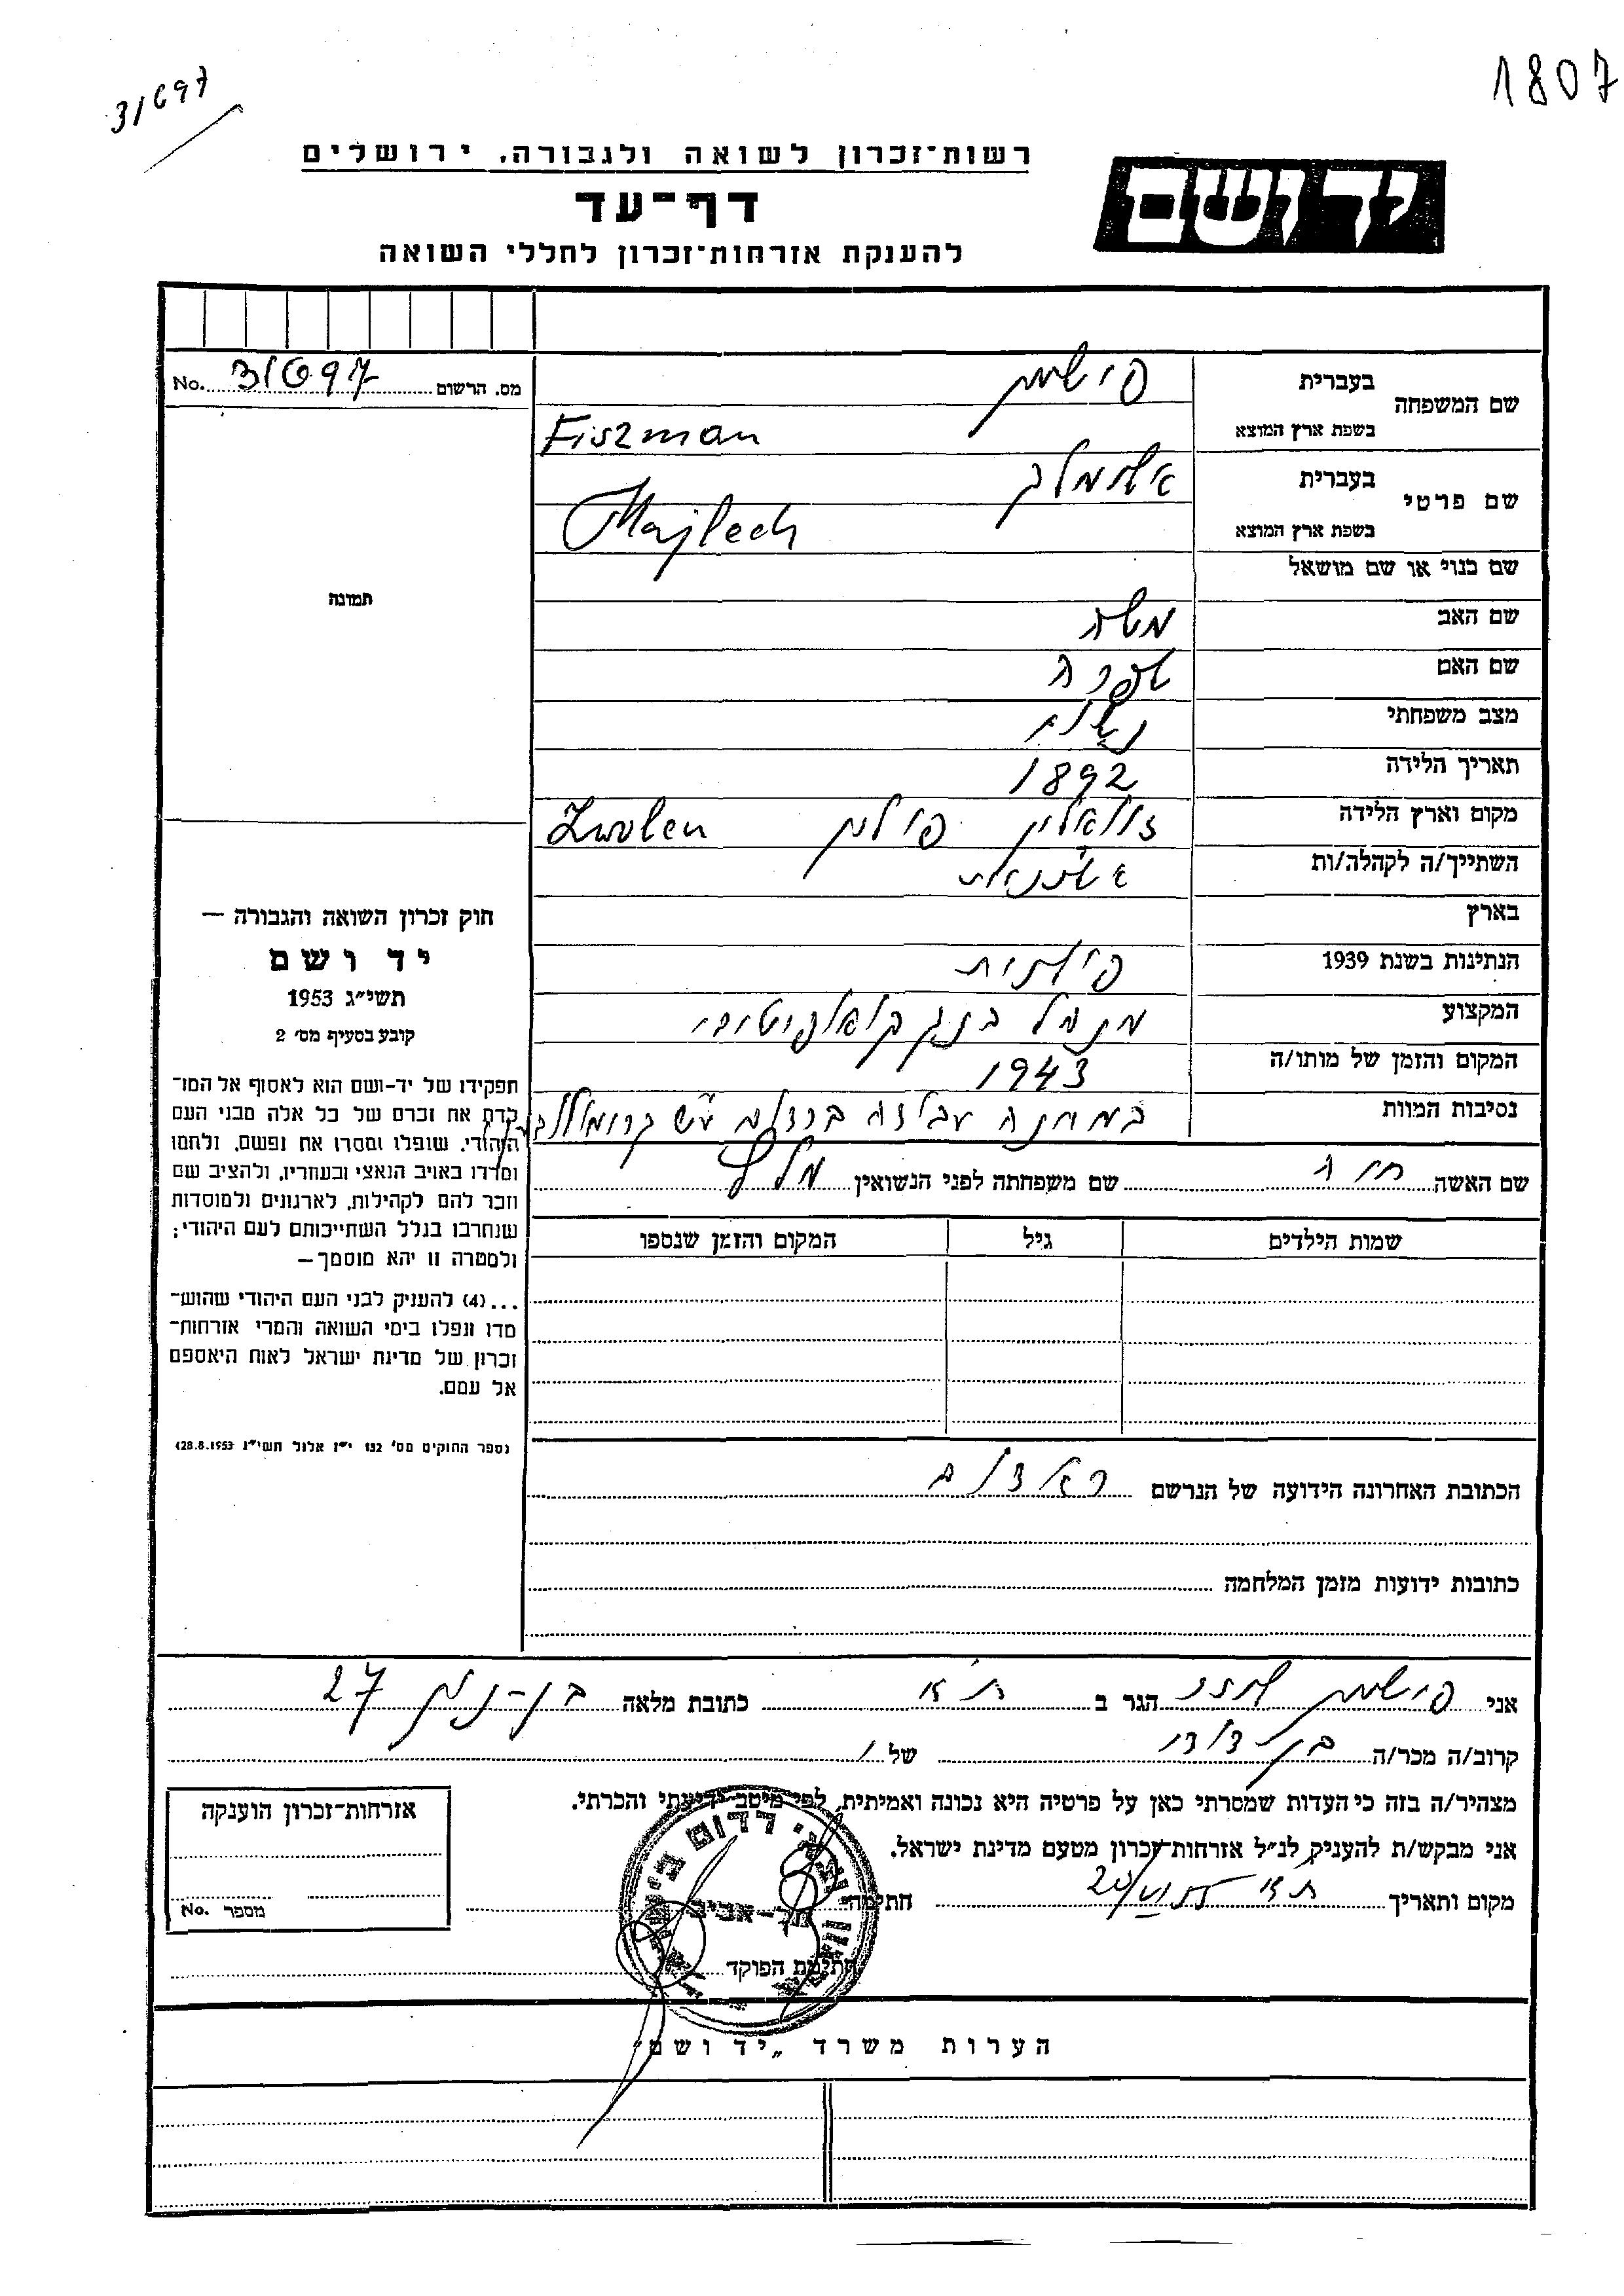 1807
31697
יד ושם
רשות־זכרון לשואה ולגבורה, ירושלים
דף־עד
להענקת אזרחות־זכרון לחללי השואה
שם המשפחה בעברית פישמן
בשפת ארץ המוצא Fiszman
שם פרטי בעברית אלימלך
בשפת ארץ המוצא Majlech
שם כנוי או שם מושאל
שם האב משה
שם האם שפרה
מצב משפחתי נשוי
תאריך הלידה 1892
מקום וארץ הלידה זוואלין פולין Zwolen
השתייך/ה לקהלה/ות
בארץ
הנתינות בשנת 1939 פולנית
המקצוע מנהל בנק קואופרטיבי
המקום והזמן של מותו/ה 1943
נסיבות המוות במחנה עבודה ע״ש
שם האשה חיה שם משפחתה לפני הנשואין
שמות הילדים גיל המקום והזמן שנספו
הכתובת האחרונה הידועה של הנרשם ראדום
כתובות ידועות מזמן המלחמה
מס. הרשום 31697 No.
תמונה
חוק זכרון השואה והגבורה —
יד ושם
תשי״ג 1953
קובע בסעיף מס׳ 2
תפקידו של יד-ושם הוא לאסוף אל המו־
לדת את זכרם של כל אלה מבני העם
היהודי, שנפלו ומסרו את נפשם, נלחמו
ומרדו באויב הנאצי ובעוזריו, ולהציב שם
וזכר להם לקהילות, לארגונים ולמוסדות
שנחרבו בגלל השתייכותם לעם היהודי;
ולמטרה זו יהא מוסמך—
...(4) להעניק לבני העם היהודי שהוש־
מדו ונפלו בימי השואה והמרי אזרחות־
זכרון של מדינת ישראל לאות היאספם
אל עמם.
(ספר החוקים מס׳ 132 י״ז אלול תשי״ג 28.8.1953)
אני פישמן הגר ב ת״א כתובת מלאה 27
קרוב/ה מכר/ה בן דודו של
מצהיר/ה בזה כי העדות שמסרתי כאן על פרטיה היא נכונה ואמיתית, לפי מיטב ידיעתי והכרתי.
אני מבקש/ת להעניק לנ״ל אזרחות־זכרון מטעם מדינת ישראל.
מקום ותאריך ת״א חתימה
חתימת הפוקד
תל-אביב
אזרחות־זכרון הוענקה
מספר No.
הערות משרד „יד ושם״